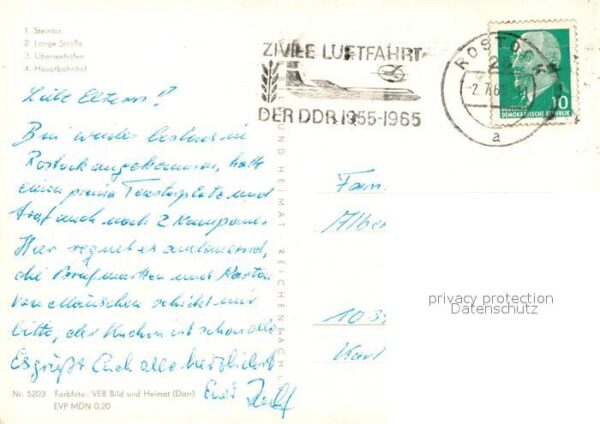 1. Steintor
2. Lange Straße
3. Überseehafen
4. Hauptbahnhof
ZIVILE LUFTFAHRT
DER DDR 1955-1965
ROSTO
2
-2.7.6
a
10
DEUTSCHE DEMOKRATISCHE REPUBLIK
Liebe Eltern!
Bin wieder bestens in
Rostock angekommen, hatte
einen prima Fensterplatz und
traf auch noch 2 Kumpane.
Hier regnet es andauernd,
die Briefmarken und Karten
von Mäuschen schickt mir
bitte, der Kuchen ist schon alle.
Es grüßt Euch alle herzlichst
Euer
UND HEIMAT REICHENBACH I.
Fam.
Alber
privacy protection
Datenschutz
Karl
Nr. 5203 Farbfoto: VEB Bild und Heimat (Darr)
EVP MDN 0,20